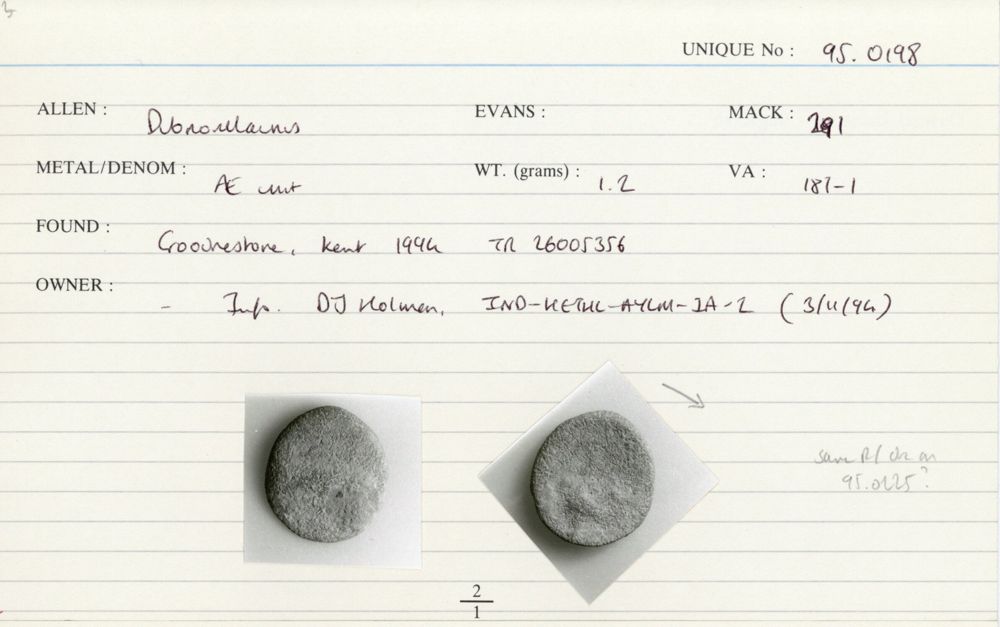 UNIQUE No : 95. 0198
ALLEN : Dubnovellaunus EVANS : MACK : 291
METAL/DENOM : Æ unit WT. (grams) : 1.2 VA : 181-1
FOUND : Goodnestone, Kent 1994 TR 26005356
OWNER : - Inf. DJ Holman, (3/11/94)
same R/ die as
95.0225?
2
1